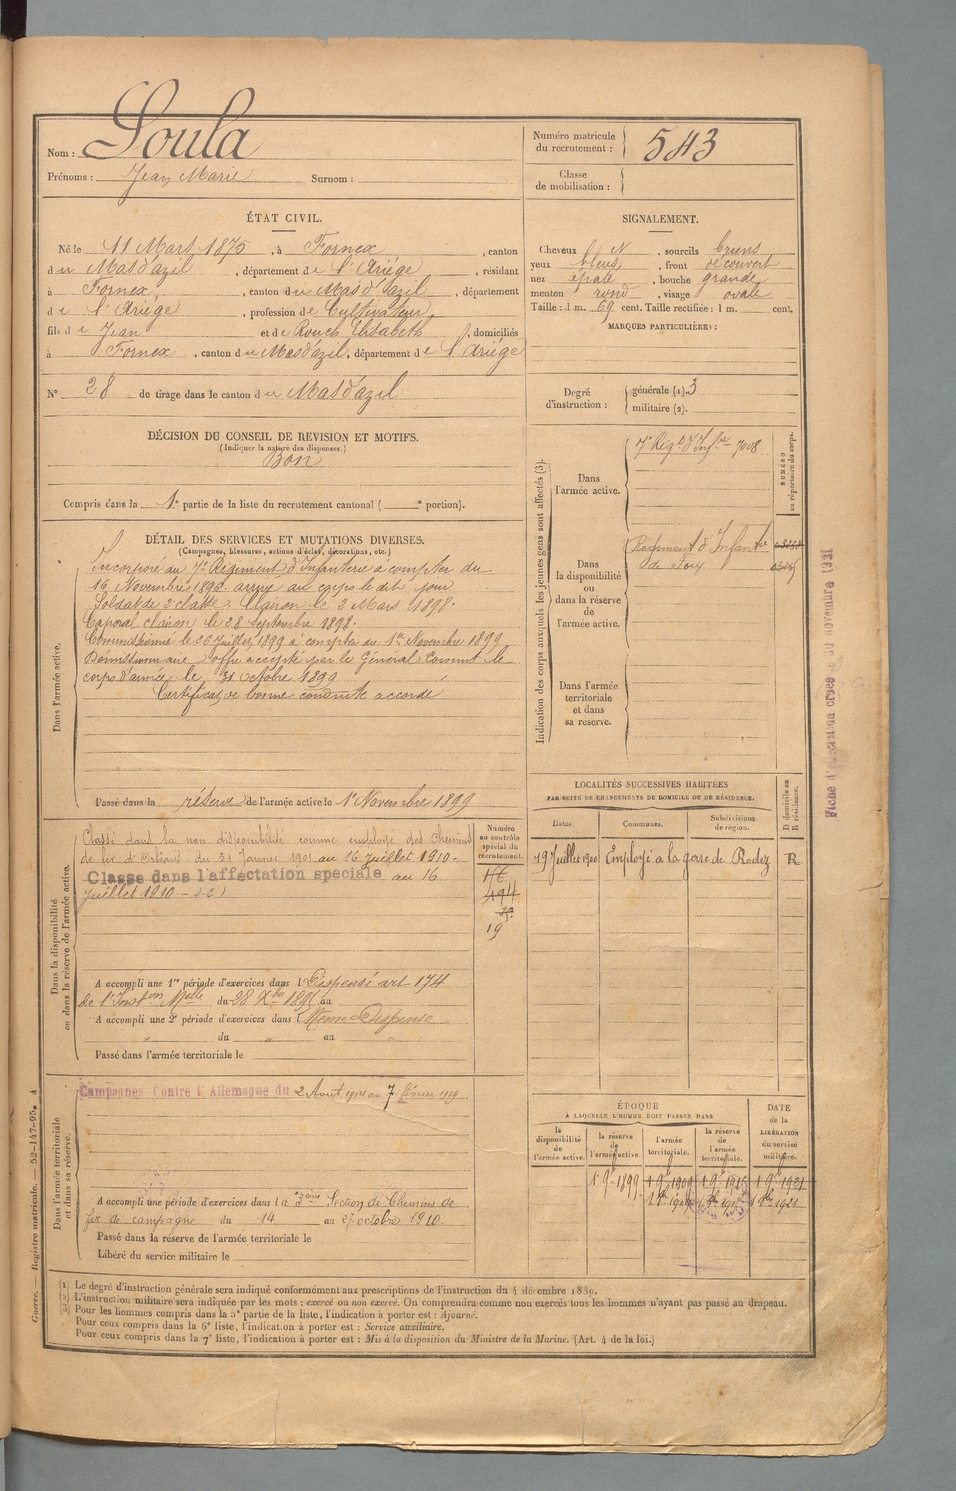 Nom : Soula
Prénoms : Jean Marie Surnom :
Numéro matricule du recrutement : 543
Classe de mobilisation :
ÉTAT CIVIL.
Né le 11 Mars 1875, à Fornex, canton
du Mas d'azil, département de l'Ariége, résidant
à Fornex, canton du Mas d'azil, département
de l'Ariége, profession de Cultivateur
fils de Jean et de Rouch Elisabeth, domiciliés
à Fornex, canton du Mas d'azil, département de l'Ariége
N° 28 de tirage dans le canton du Mas d'azil
SIGNALEMENT.
Cheveux ch N, sourcils bruns
yeux bleus, front découvert
nez épaté, bouche grande
menton rond, visage ovale
Taille : 1 m. 69 cent. Taille rectifiée : 1 m. cent.
MARQUES PARTICULIÈRES :
Degré d'instruction : générale (1) 3
militaire (2).
DÉCISION DU CONSEIL DE REVISION ET MOTIFS.
(Indiquer la nature des dispenses.)
Bon
Compris dans la 1e partie de la liste du recrutement cantonal ( e portion).
DÉTAIL DES SERVICES ET MUTATIONS DIVERSES.
(Campagnes, blessures, actions d'éclat, décorations, etc.)
Dans l'armée active.
Incorporé au 7e Régiment d'Infanterie à compter du
16 Novembre 1896 arrivé au corps le dit jour
Soldat de 2e classe. Clairon le 2 Mars 1898.
Caporal clairon le 28 Septembre 1898.
Commissionné le 26 Juillet 1899 à compter du 1er Novembre 1899
Démissionnaire offre acceptée par le Général Commt le
corps d'armée le 31 octobre 1899
Certificat de bonne conduite accordé
Passé dans la réserve de l'armée active le 1er Novembre 1899
Indication des corps auxquels les jeunes gens sont affectés (3).
NUMÉRO au répertoire du corps.
Dans l'armée active.
7e Régt d'Infie 7008
Dans la disponibilité ou dans la réserve de l'armée active.
Régiment d'Infanterie
de Foix
Dans l'armée territoriale et dans sa réserve.
Fiche d'affectation créée novembre 1921
LOCALITÉS SUCCESSIVES HABITÉES
PAR SUITE DE CHANGEMENTS DE DOMICILE OU DE RÉSIDENCE.
Dates. Communes. Subdivisions de région. D domicile ou R résidence.
19 Juillet 1900 Employé à la gare de Rodez R
Dans la disponibilité ou dans la réserve de l'armée active.
Numéro au contrôle spécial du recrutement.
Classé dans la non disponibilité comme employé des Chemins
de fer d'Orléans du 31 Janvier 1901 au 16 Juillet 1910.
Classé dans l'affectation spéciale au 16
Juillet 1910 - s.c)
16
494
19
A accompli une 1re période d'exercices dans l Dispensé art 174
de l'Instion Melle du 28 Xbre 1895 au
A accompli une 2e période d'exercices dans l Même Dispense
" du " au "
Passé dans l'armée territoriale le
Dans l'armée territoriale et dans sa réserve.
Campagnes Contre l'Allemagne du 2 Aout 1914 au 7 février 1919
A accompli une période d'exercices dans la 3eme Section de Chemins de
fer de campagne du 14 au 27 octobre 1910.
Passé dans la réserve de l'armée territoriale le
Libéré du service militaire le
ÉPOQUE
À LAQUELLE L'HOMME DOIT PASSER DANS
la disponibilité de l'armée active. la réserve de l'armée active. l'armée territoriale. la réserve de l'armée territoriale. DATE de la LIBÉRATION du service militaire.
1er 9bre 1899 1er 9bre 1909 1er 9bre 1915 1er 9bre 1921
Guerre. — Registre matricule. — 52-147-95. 4
(1) Le degré d'instruction générale sera indiqué conformément aux prescriptions de l'instruction du 4 décembre 1889.
(2) L'instruction militaire sera indiquée par les mots : exercé ou non exercé. On comprendra comme non exercés tous les hommes n'ayant pas passé au drapeau.
(3) Pour les hommes compris dans la 5e partie de la liste, l'indication à porter est : Ajourné.
Pour ceux compris dans la 6e liste, l'indication à porter est : Service auxiliaire.
Pour ceux compris dans la 7e liste, l'indication à porter est : Mis à la disposition du Ministre de la Marine. (Art. 4 de la loi.)